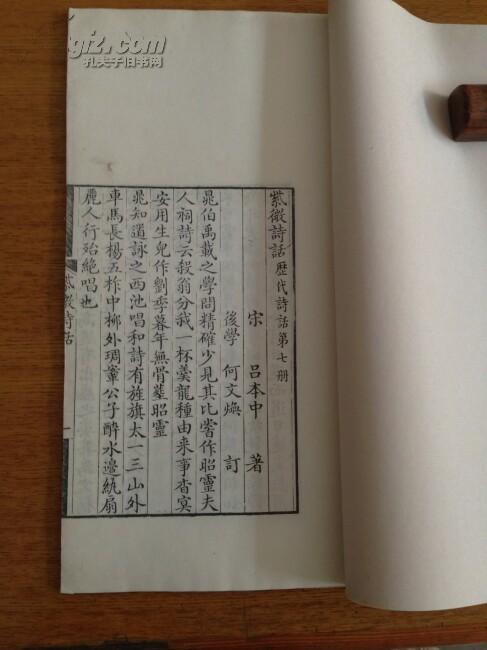 紫微詩話 歷代詩話第七册
宋 呂本中 著
後學 何文煥 訂
晁伯禹載之學問精確少見其比嘗作昭靈夫
人祠詩云殺翁分我一杯羹龍種由来事杳冥
安用生兒作劉季暮年無骨葬昭靈
晁知道詠之西池唱和詩有旌旗太一三山外
車馬長楊五柞中柳外琱鞌公子醉水邊紈扇
麗人行殆絶唱也
紫微詩話
一
gjz.com
孔夫子旧书网